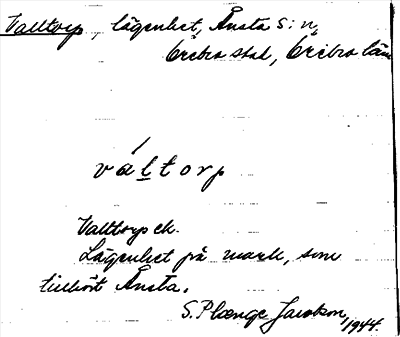 Valltorp, lägenhet, Ånsta s:n,
Örebro stad, Örebro län
váltorp
Valltorp ek.
Lägenhet på mark, som
tillhört Ånsta.
S. Plænge Jacobson, 1944.